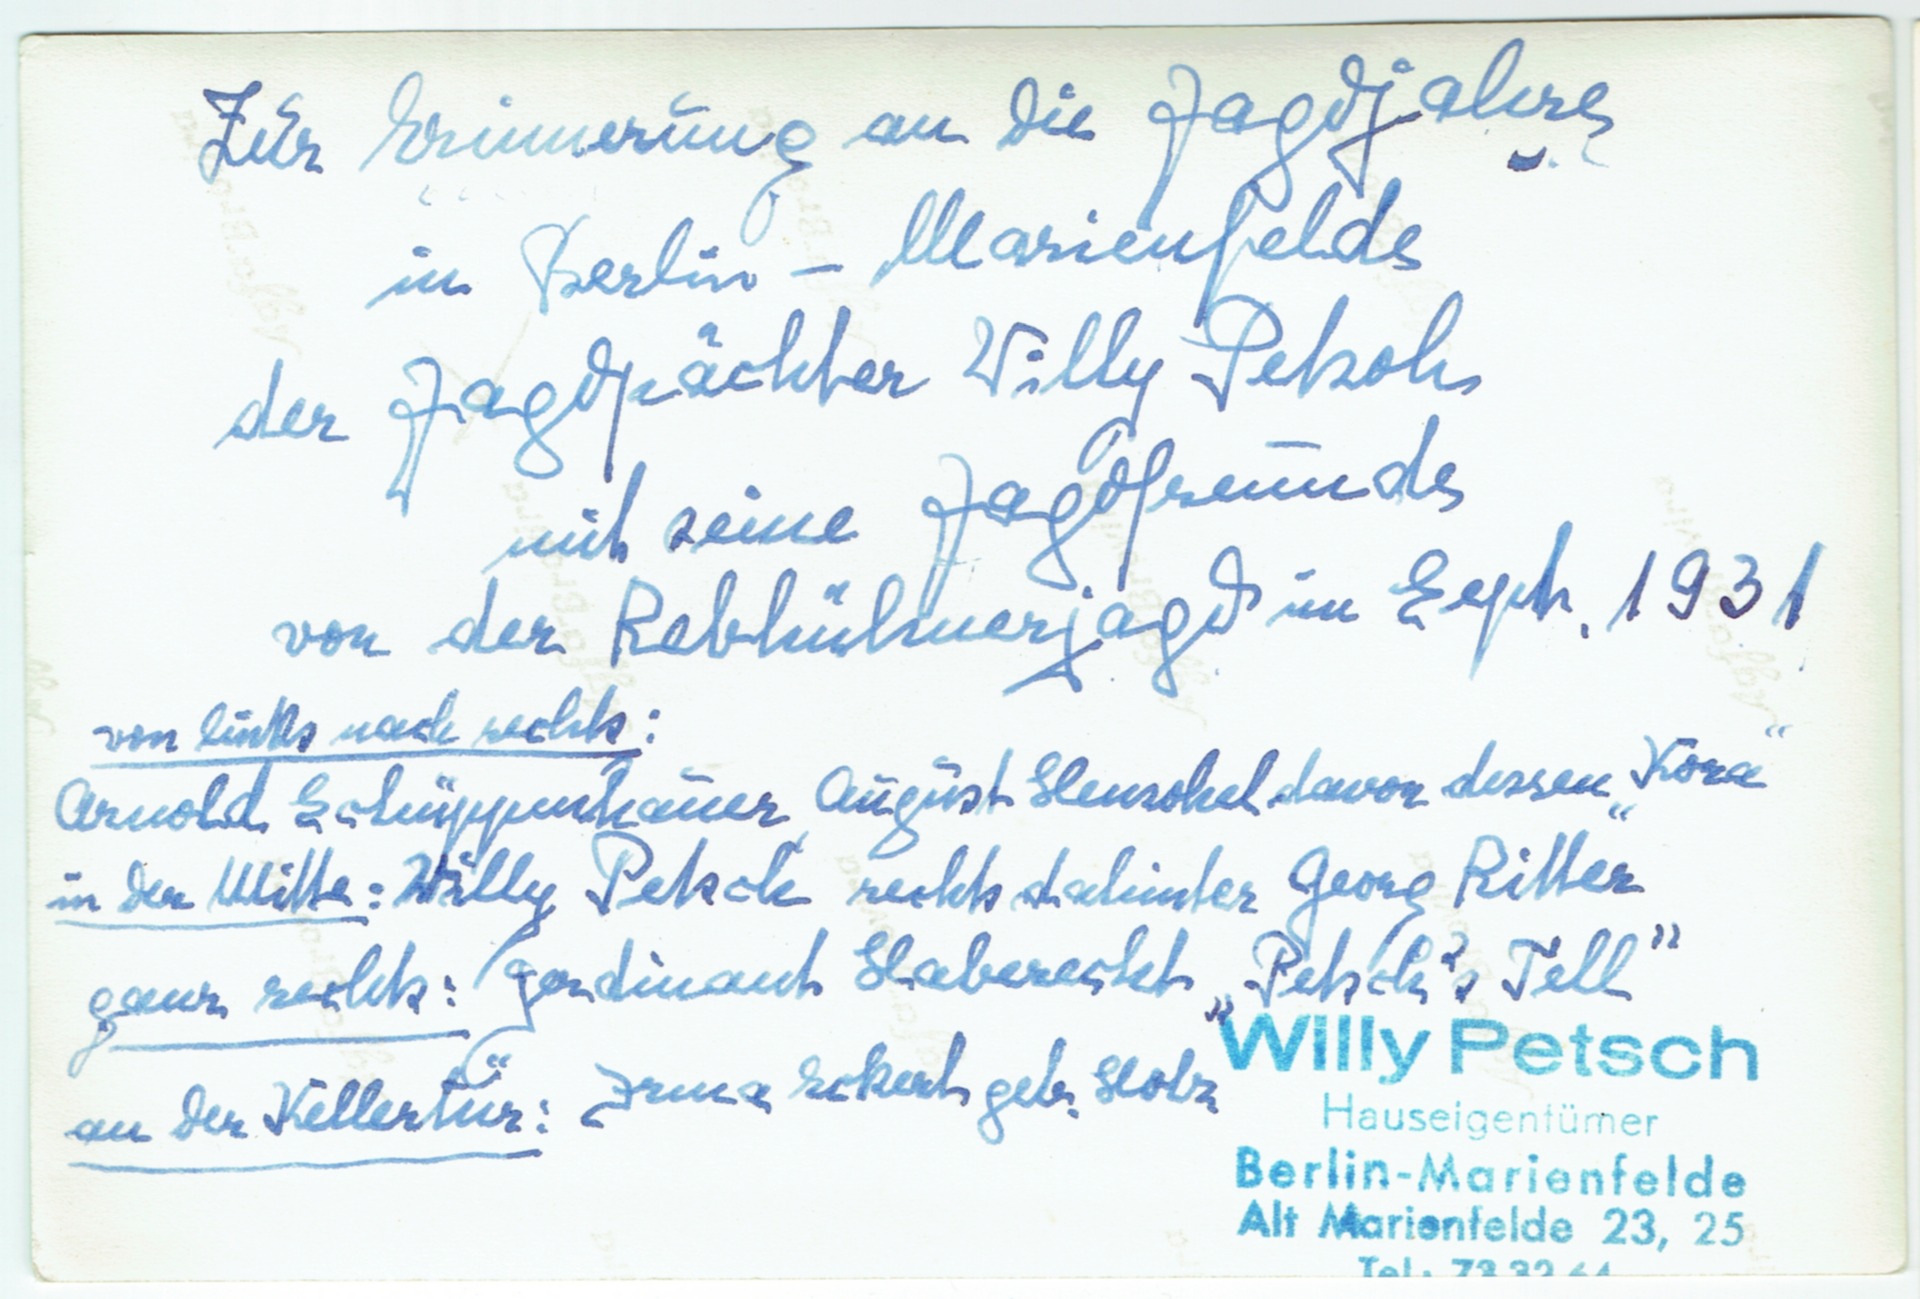 Zur Erinnerung an die Jagdjahre
in Berlin – Marienfelde
der Jagdpächter Willy Petsch
mit seine Jagdfreunde
von der Rebhühnerjagd im Sept. 1931
von links nach rechts:
Arnold Schüppenhauer, August Henschel davor dessen „Kora“
in der Mitte: Willy Petsch rechts dahinter Georg Ritter
ganz rechts: Ferdinant Haberecht „Petsch's Tell“
an der Kellertür: Irma Eckert geb. Holz
Willy Petsch
Hauseigentümer
Berlin-Marienfelde
Alt Marienfelde 23, 25
Tel.: 73 32 64